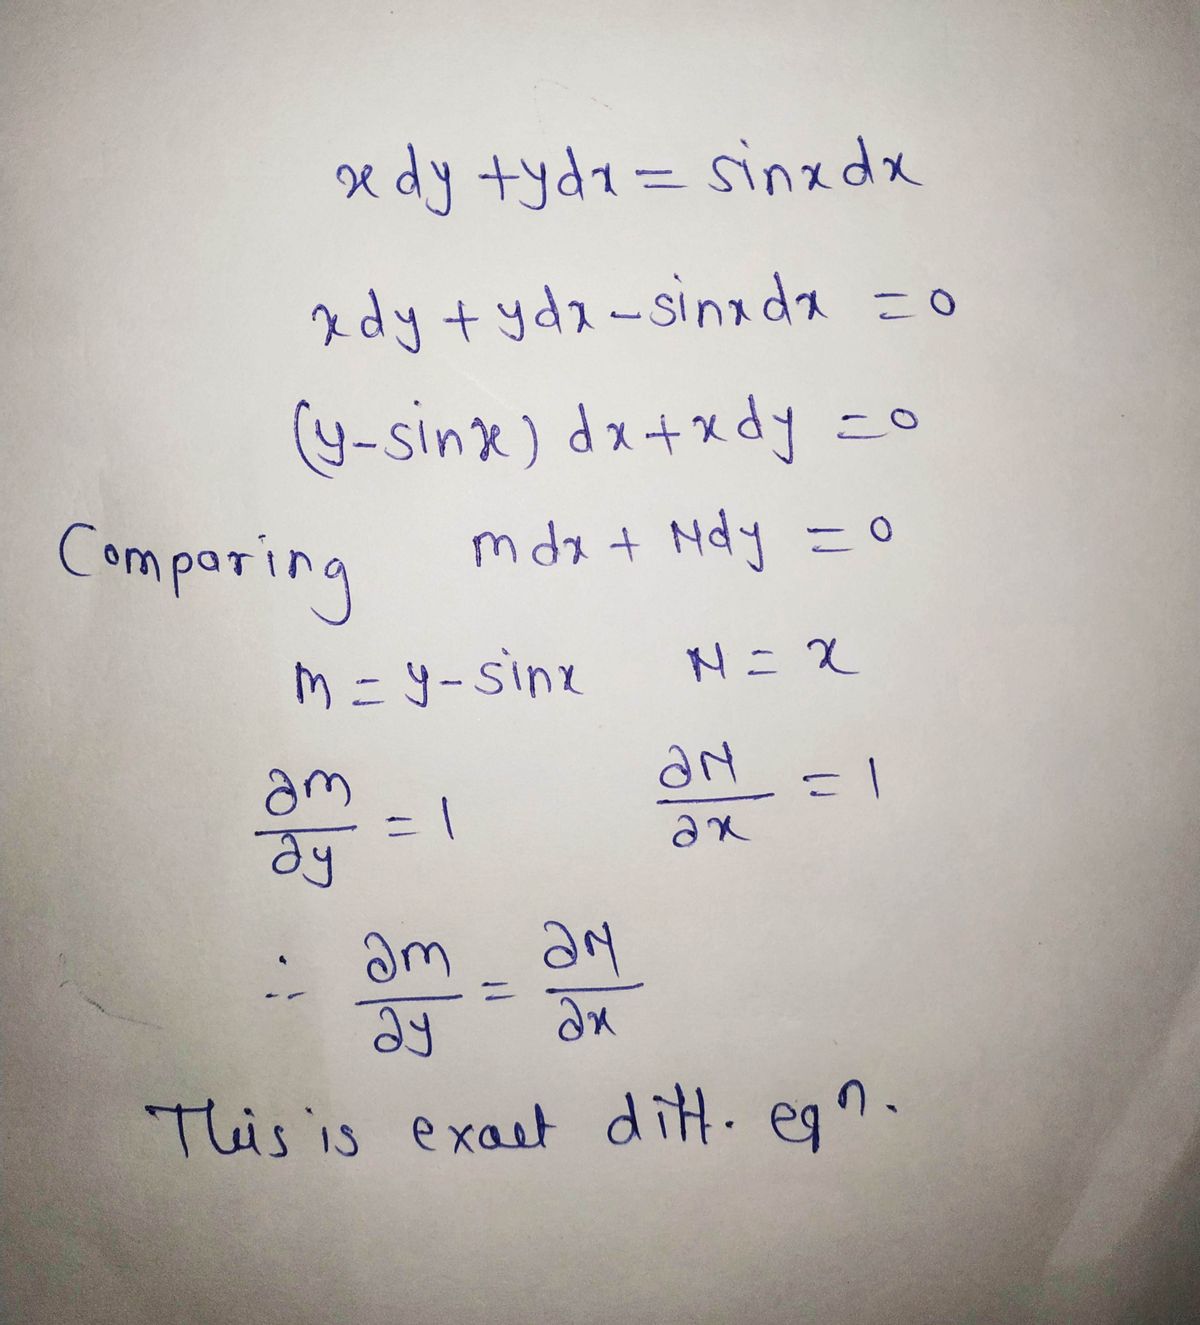 x dy + ydx = sinx dx
xdy + ydx - sinx dx = 0
(y-sinx) dx + x dy = 0
Comparing mdx + Ndy = 0
m = y-sinx N = x
∂m/∂y = 1 ∂N/∂x = 1
∴ ∂m/∂y = ∂N/∂x
This is exact diff. eqⁿ.